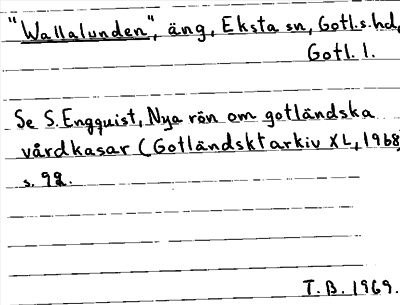 "Wallalunden", äng, Eksta sn, Gotl.s.hd,
Gotl. l.
Se S. Engquist, Nya rön om gotländska
vårdkasar (Gotländskt arkiv XL, 1968)
s. 92.
T. B. 1969.